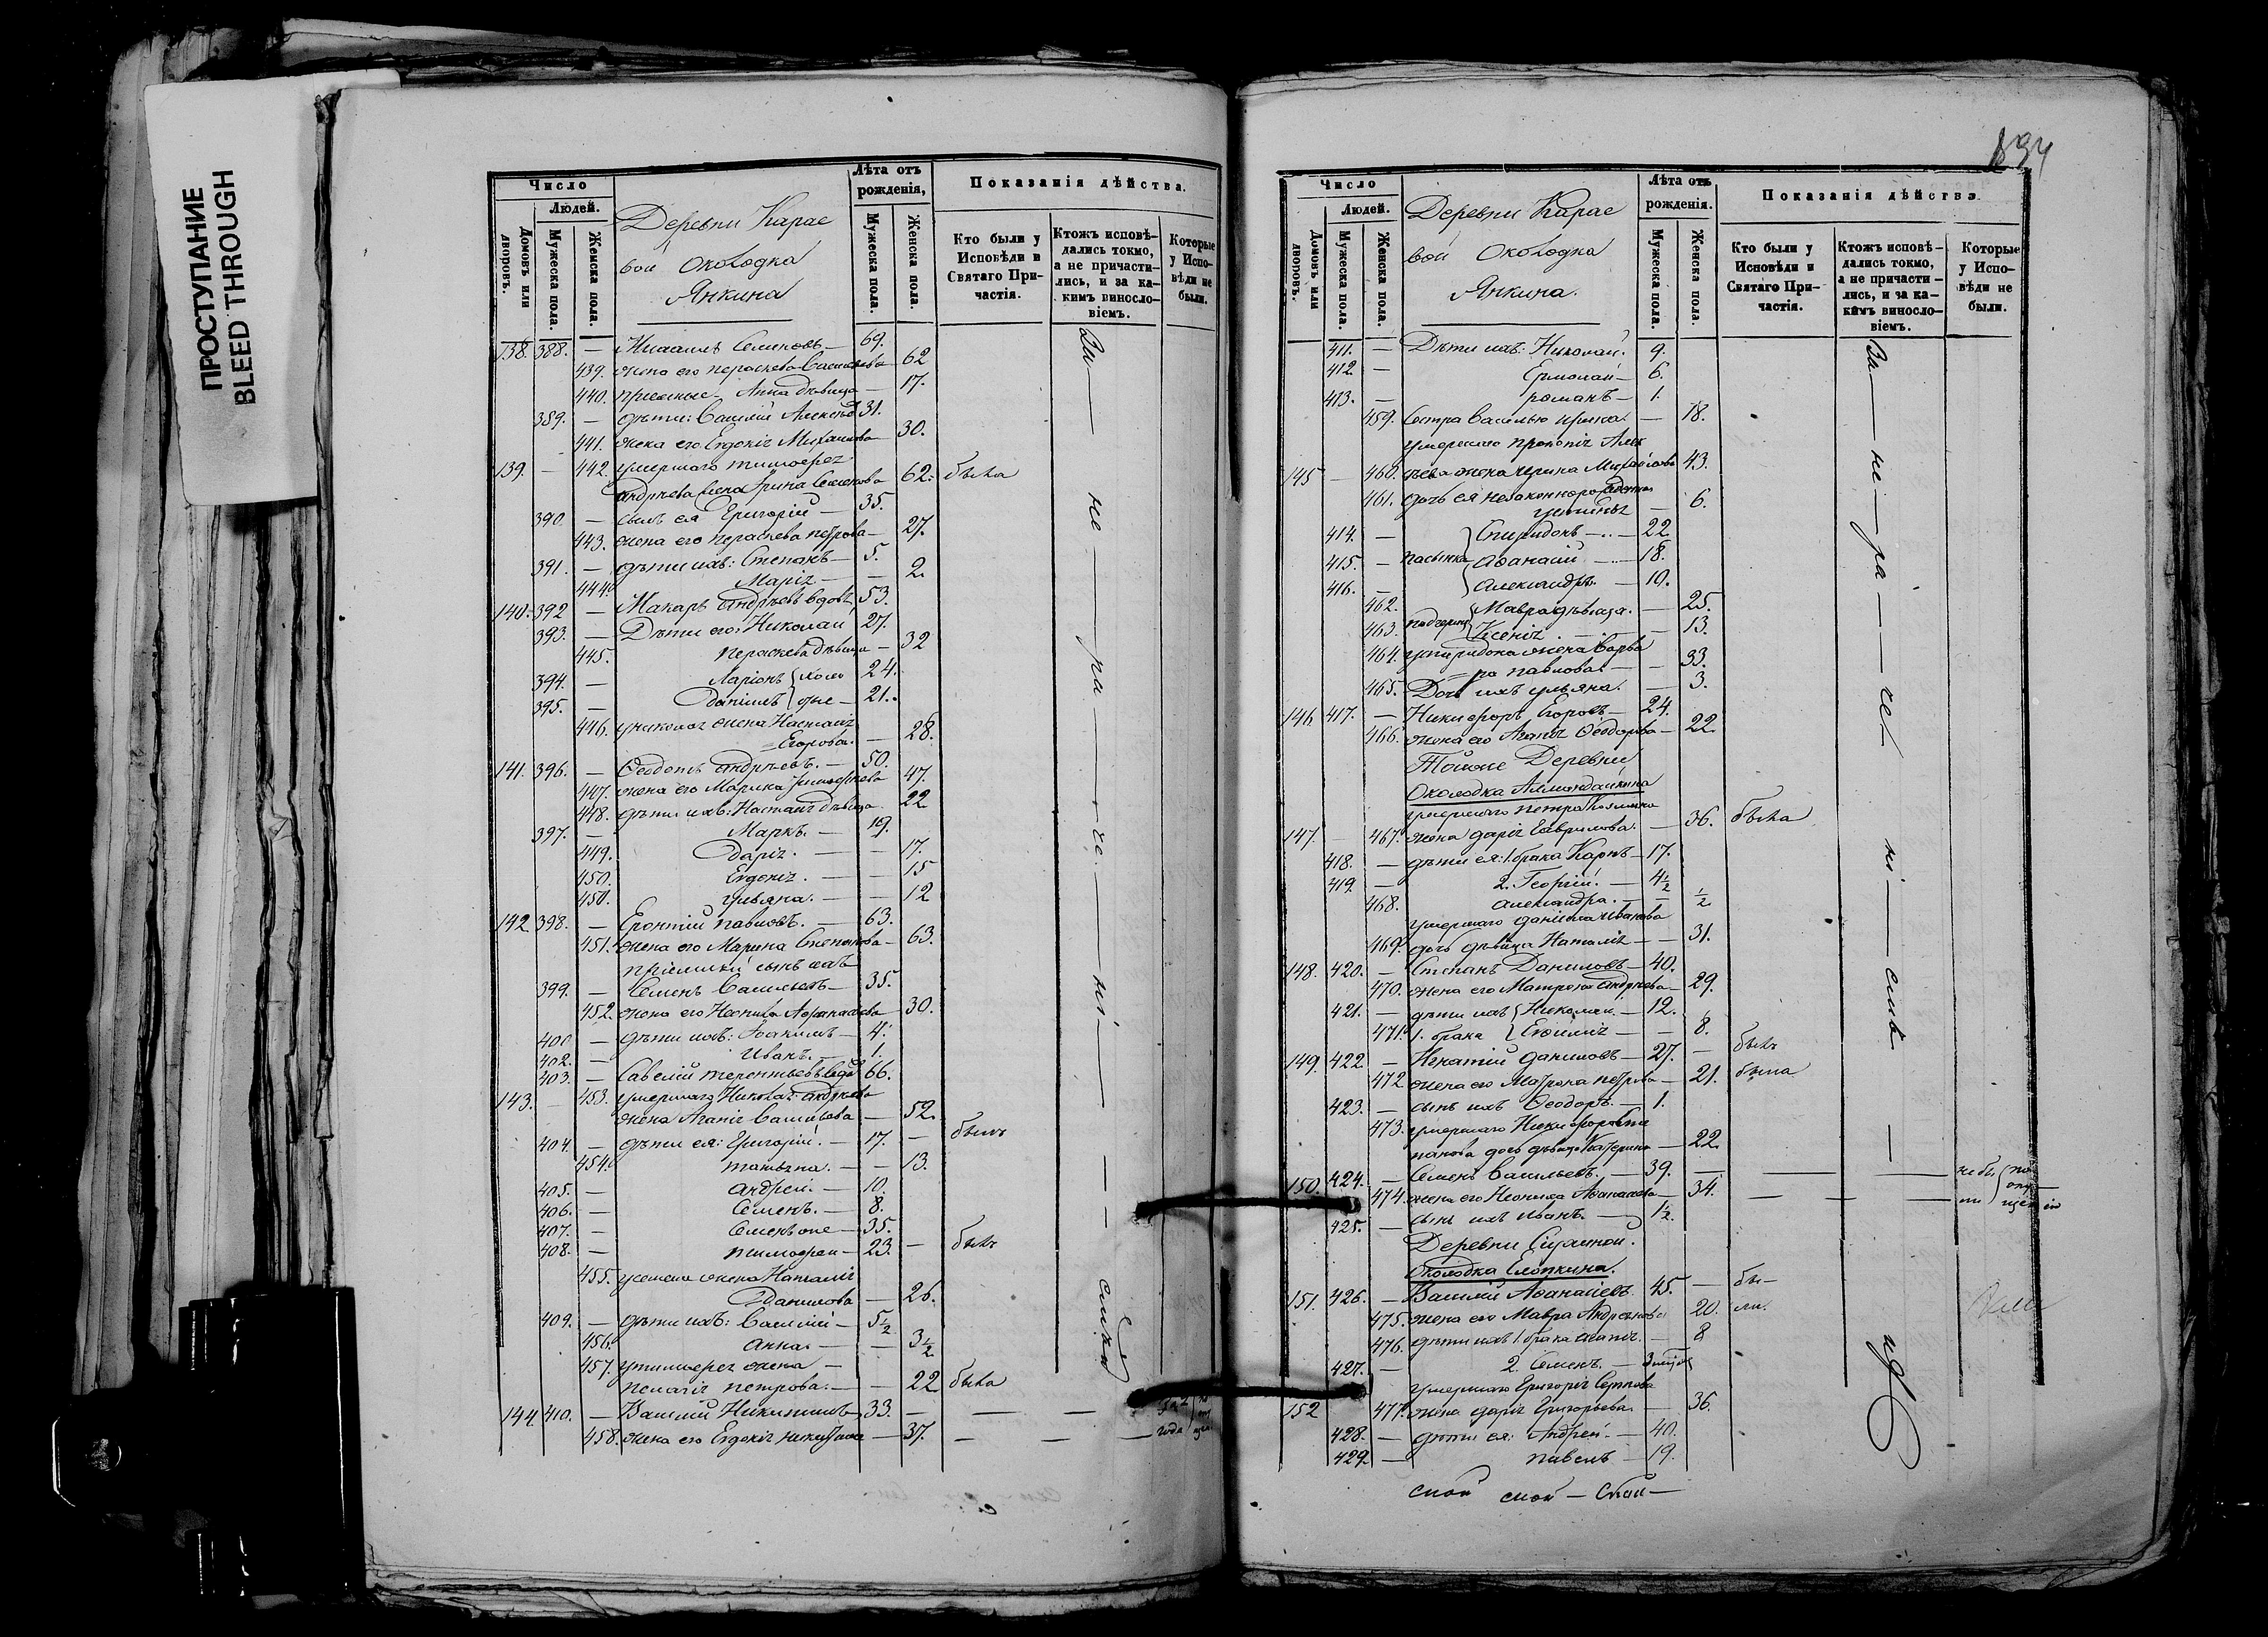 ПРОСТУПАНИЕ
BLEED THROUGH
Число
Людей.
Домовъ или дворовъ.
Мужеска пола.
Женска пола.
Деревни Карае
вой Околодка
Янкина
Лѣта отъ рожденія,
Мужеска пола.
Женска пола.
Показанія дѣйства.
Кто были у Исповѣди и Святаго Причастія.
Ктожъ исповѣдались токмо, а не причастились, и за какимъ винословіемъ.
Которые у Исповѣди не были.
138. 388. — Семеновъ — 69.
439. жена его Параскева Васильева 62
440. приемные — Анна дѣвица — 17.
389. — дѣти: Василій Алексѣевъ 31.
441. жена его Евдокія Михайлова — 30.
139. — 442. умершаго Тимофея
Андрѣева жена Ирина Семенова 62. была
390. — сынъ ея Григорій — 35.
443. жена его Параскева Петрова — 27.
391. — дѣти ихъ: Степанъ — 5.
444. Марія — — 2.
140. 392 — Макаръ Андрѣевъ вдовъ 53.
393. — Дѣти его: Николай 27.
445. Параскева дѣвица — 32
394. — Ларіонъ холо 24.
395. — Даніилъ стые — 21.
446. у Николая жена Настасія
Егорова. — 28.
141. 396. — Ѳеодотъ Андрѣевъ. — 50.
447. жена его Марина Тимофеева 47.
448. дѣти ихъ: Настасія дѣвица 22
397. — Маркъ. — 19.
449. Дарія. — — 17.
450. Евдокія. — — 15
450. Ульяна. — — 12
142 398. — Павловъ. — 63.
451. жена его Марина Степанова — 63.
пріемный сынъ ихъ
399. — Семенъ Васильевъ — 35.
452. жена его Неонила Афанасьева 30.
400 — дѣти ихъ: Іоакимъ — 4.
402. — Иванъ. — 1.
403. — Савелій Терентьевъ вдовъ 66.
143. — 453. умершаго Николая Андрѣева
жена Агапія Васильева — 52.
404. — дѣти ея: Григорій. — 17. — былъ
454. Татьяна. — — 13.
405. — Андрей. — 10.
406. — Семенъ. — 8.
407. — Семенъ — 35.
408. — Тимофей — 23. — былъ
455. у Семена жена Наталія
Данилова — 26.
409. — дѣти ихъ: Василій — 5½
456. Анна. — — 3½
457. у Тимофея жена —
Пелагія Петрова. — — 22 была
144. 410. — Василій Никитинъ 33. — — —
458. жена его Евдокія Никитина — 37. — — — года
Число
Людей.
Домовъ или дворовъ.
Мужеска пола.
Женска пола.
Деревни Карае
вой Околодка
Янкина.
Лѣта отъ рожденія.
Мужеска пола.
Женска пола.
Показанія дѣйства.
Кто были у Исповѣди и Святаго Причастія.
Ктожъ исповѣдались токмо, а не причастились, и за какимъ винословіемъ.
Которые у Исповѣди не были.
411. — Дѣти ихъ: Николай. 9.
412. — Ермолай — 6.
413. — Романъ — 1.
459. Сестра Василью Ирина. — 18.
умершаго Прокопія Алек
145 — 460. сѣева жена Ирина Михайлова 43.
461. дочь ея незаконнорожденная
Устинія — 6.
414. — Спиридонъ — 22
415. — пасынки Аѳанасій — 18.
416. — Александръ. — 10.
462. Мавра дѣвица. — 25.
463. падчерицы Ксенія. — — 13.
464. у Спиридона жена Варва
ра Павлова. — — 33.
465. Дочь ихъ Ульяна. — 3.
146 417. — Никифоръ Егоровъ — 24.
466. жена его Агапія Ѳеодорова — 22.
Тойже Деревни
Околодка Алмандайкина
умершаго Петра Козмина
147. — 467. жена Дарія Гаврилова. — 36. была
418. — дѣти ея: 1. брака Карпъ — 17.
419. — 2. Георгій. — 4½
468. Александра. — — ½
умершаго Даніила Иванова
469. дочь дѣвица Наталія — — 31.
148. 420. — Степанъ Даниловъ — 40.
470. жена его Матрона Андрѣева — 29.
421. — дѣти ихъ Николай. — 12.
471. 1. брака Евфимія — — 8.
149. 422 — Игнатій Даниловъ — 27. — былъ
472. жена его Матрона Петрова — 21. была
423. — сынъ ихъ Ѳеодоръ. — 1.
473. умершаго Никифора Сте
панова дочь дѣвица Катерина — 22.
150. 424. — Семенъ Васильевъ. — 39. — — — не бы
474. жена его Неонила Аѳанасьева — 34. — — — ли
425. — сынъ ихъ Иванъ. — 1½.
Деревни
Околодка Слопкина.
151. 426. — Василій Аѳанасьевъ. 45. — бы-
475. жена его Мавра Андреянова 20. ли.
476. дѣти ихъ 1. брака Агапія. — 8
427. — 2. Семенъ. — 3
умершаго Григорія
152 477. жена Дарія Григорьева. — 36.
428. — дѣти ея: Андрей. — 40.
429. — Павелъ — 19.